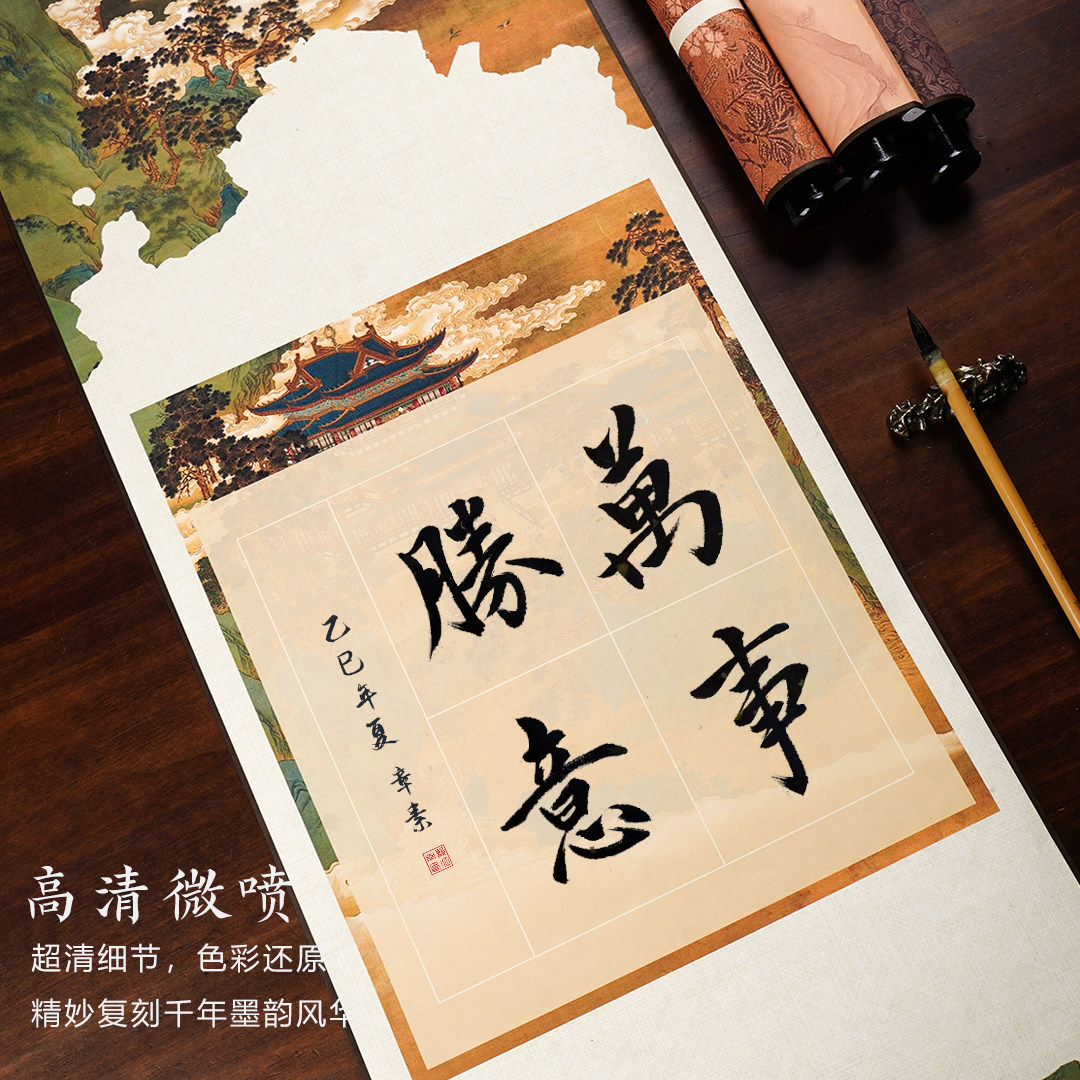 萬事
勝意
乙巳年夏 章素
高清微喷
超清细节，色彩还原
精妙复刻千年墨韵风华